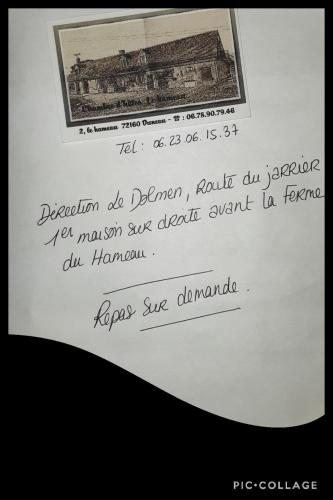 Chambre d'hôtes Le hameau
2, le hameau 72160 Duneau - ☎ : 06.78.90.79.46
Tél: 06.23.06.15.37
Direction de Dolmen, Route du jarrier
1er maison sur droite avant la Ferme
du Hameau.
Repas sur demande.
PIC•COLLAGE